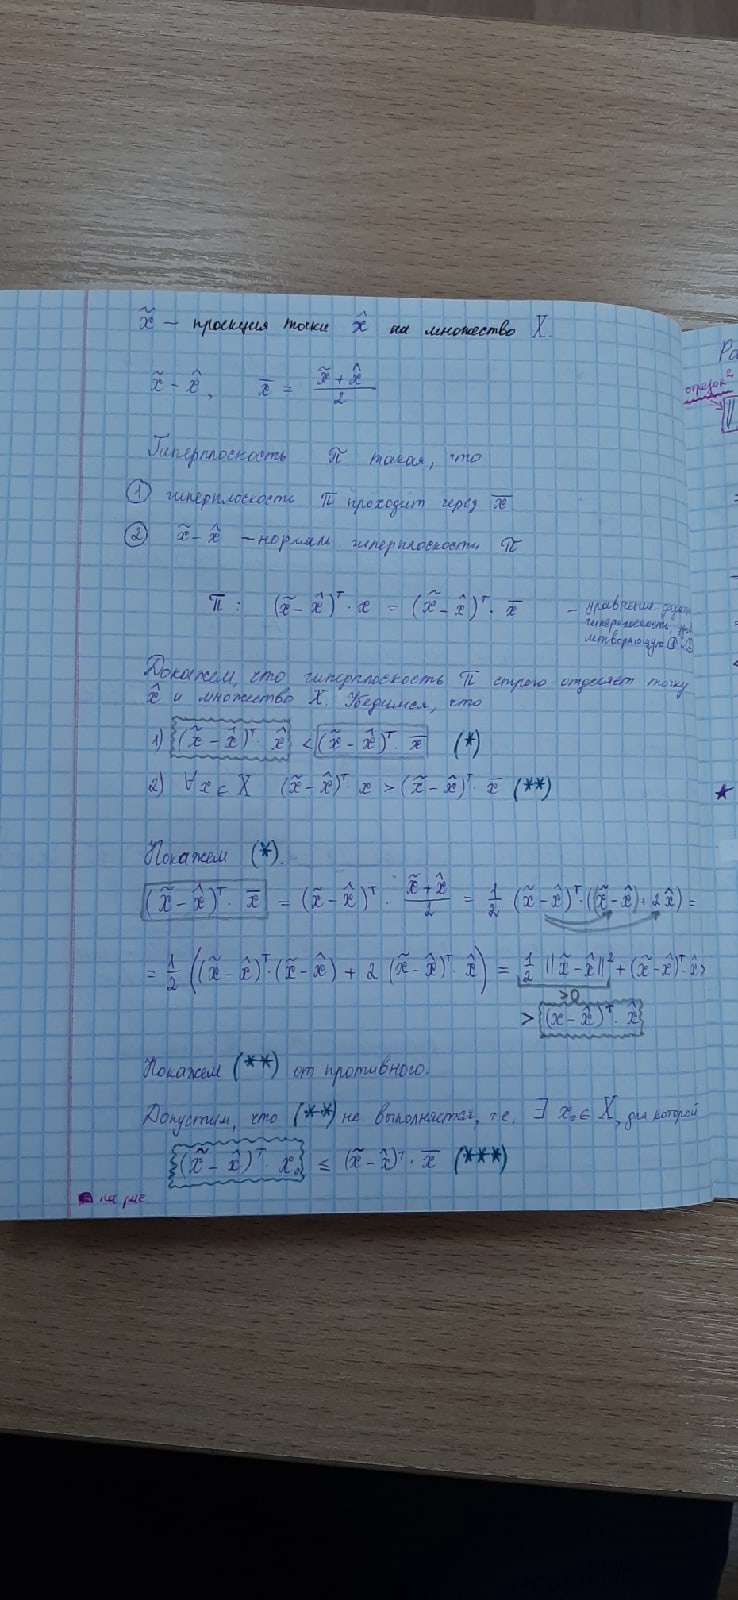 x̃ – проекция точки x̂ на множество X.
x̃ - x̂, x̄ = (x̃ + x̂)/2
Гиперплоскость π такая, что
① гиперплоскость π проходит через x̄
② x̃ - x̂ – нормаль гиперплоскости π
π: (x̃ - x̂)ᵀ · x = (x̃ - x̂)ᵀ · x̄ – уравнение
гиперплоскости,
① ②
Докажем, что гиперплоскость π строго отделяет точку
x̂ и множество X. Убедимся, что
1) (x̃ - x̂)ᵀ · x̂ < (x̃ - x̂)ᵀ · x̄ (*)
2) ∀x ∈ X (x̃ - x̂)ᵀ · x > (x̃ - x̂)ᵀ · x̄ (**)
Покажем (*).
(x̃ - x̂)ᵀ · x̄ = (x̃ - x̂)ᵀ · (x̃ + x̂)/2 = 1/2 (x̃ - x̂)ᵀ · ((x̃ - x̂) + 2x̂) =
= 1/2 ((x̃ - x̂)ᵀ · (x̃ - x̂) + 2 (x̃ - x̂)ᵀ · x̂) = 1/2 ||x̃ - x̂||² + (x̃ - x̂)ᵀ · x̂ >
>0
> (x - x̂)ᵀ · x̂
Покажем (**) от противного.
Допустим, что (**) не выполняется, т.е. ∃ x₀ ∈ X, для которой
(x̃ - x̂)ᵀ · x₀ ≤ (x̃ - x̂)ᵀ · x̄ (***)
на рис.
отрезок
2
★